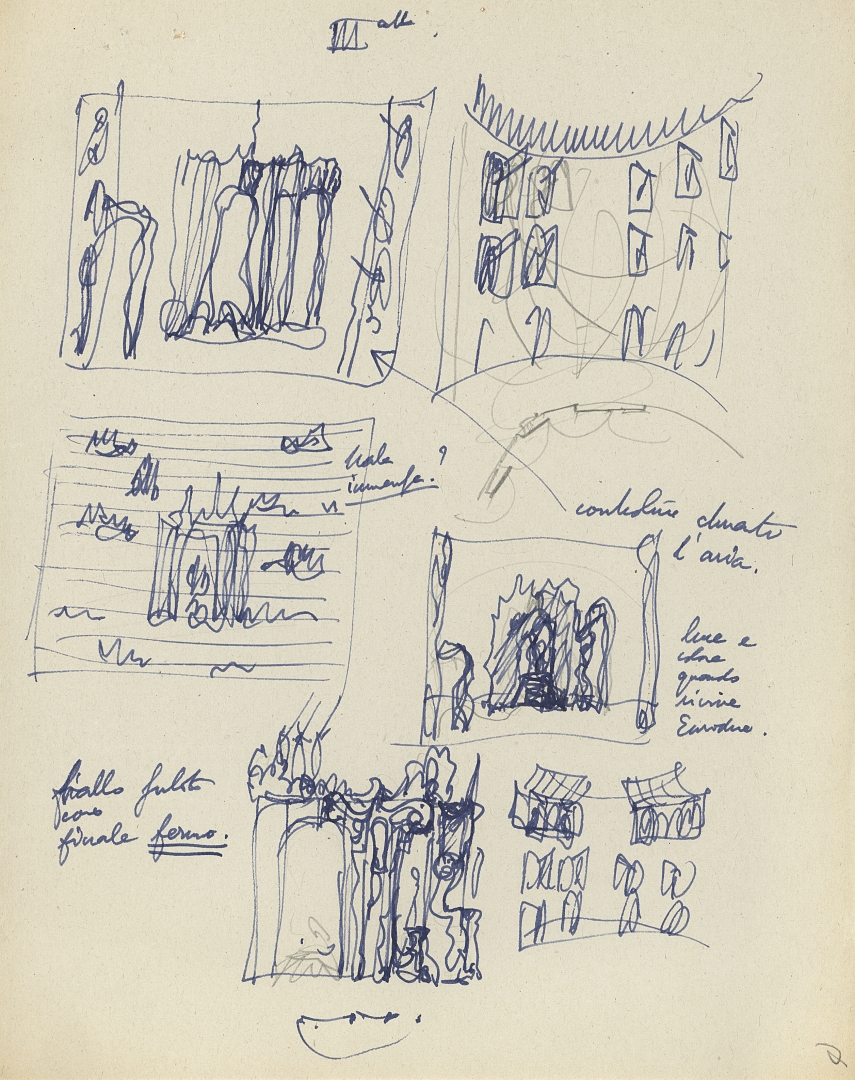 III atto.
sala ?
immensa.
controluce durante
l'aria.
luce e
quando
rivive
Euridice.
giallo subito
coro
finale fermo.